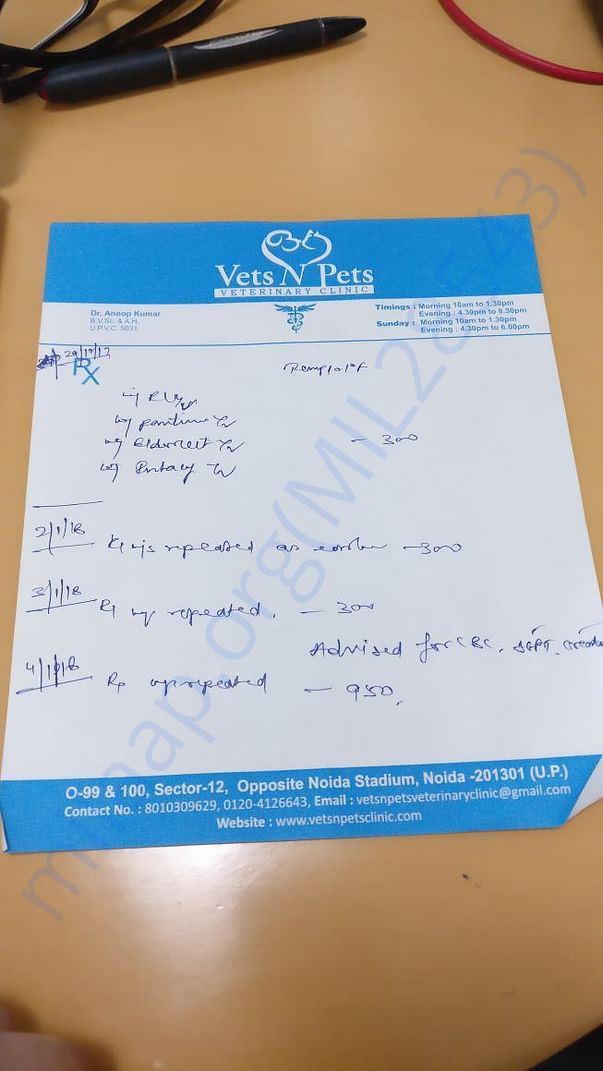 Vets N Pets
VETERINARY CLINIC
Dr. Anoop Kumar
B.V.Sc. & A.H.
U.P.V.C. 5031
Timings : Morning 10am to 1.30pm
Evening : 4.30pm to 8.30pm
Sunday : Morning 10am to 1.30pm
Evening : 4.30pm to 6.00pm
Rx
- 300
2/1/18
repeated as earlier - 300
3/1/18
repeated. - 300
Advised for CBC, SGPT,
4/1/18
repeated - 950,
O-99 & 100, Sector-12, Opposite Noida Stadium, Noida -201301 (U.P.)
Contact No. : 8010309629, 0120-4126643, Email : vetsnpetsveterinaryclinic@gmail.com
Website : www.vetsnpetsclinic.com